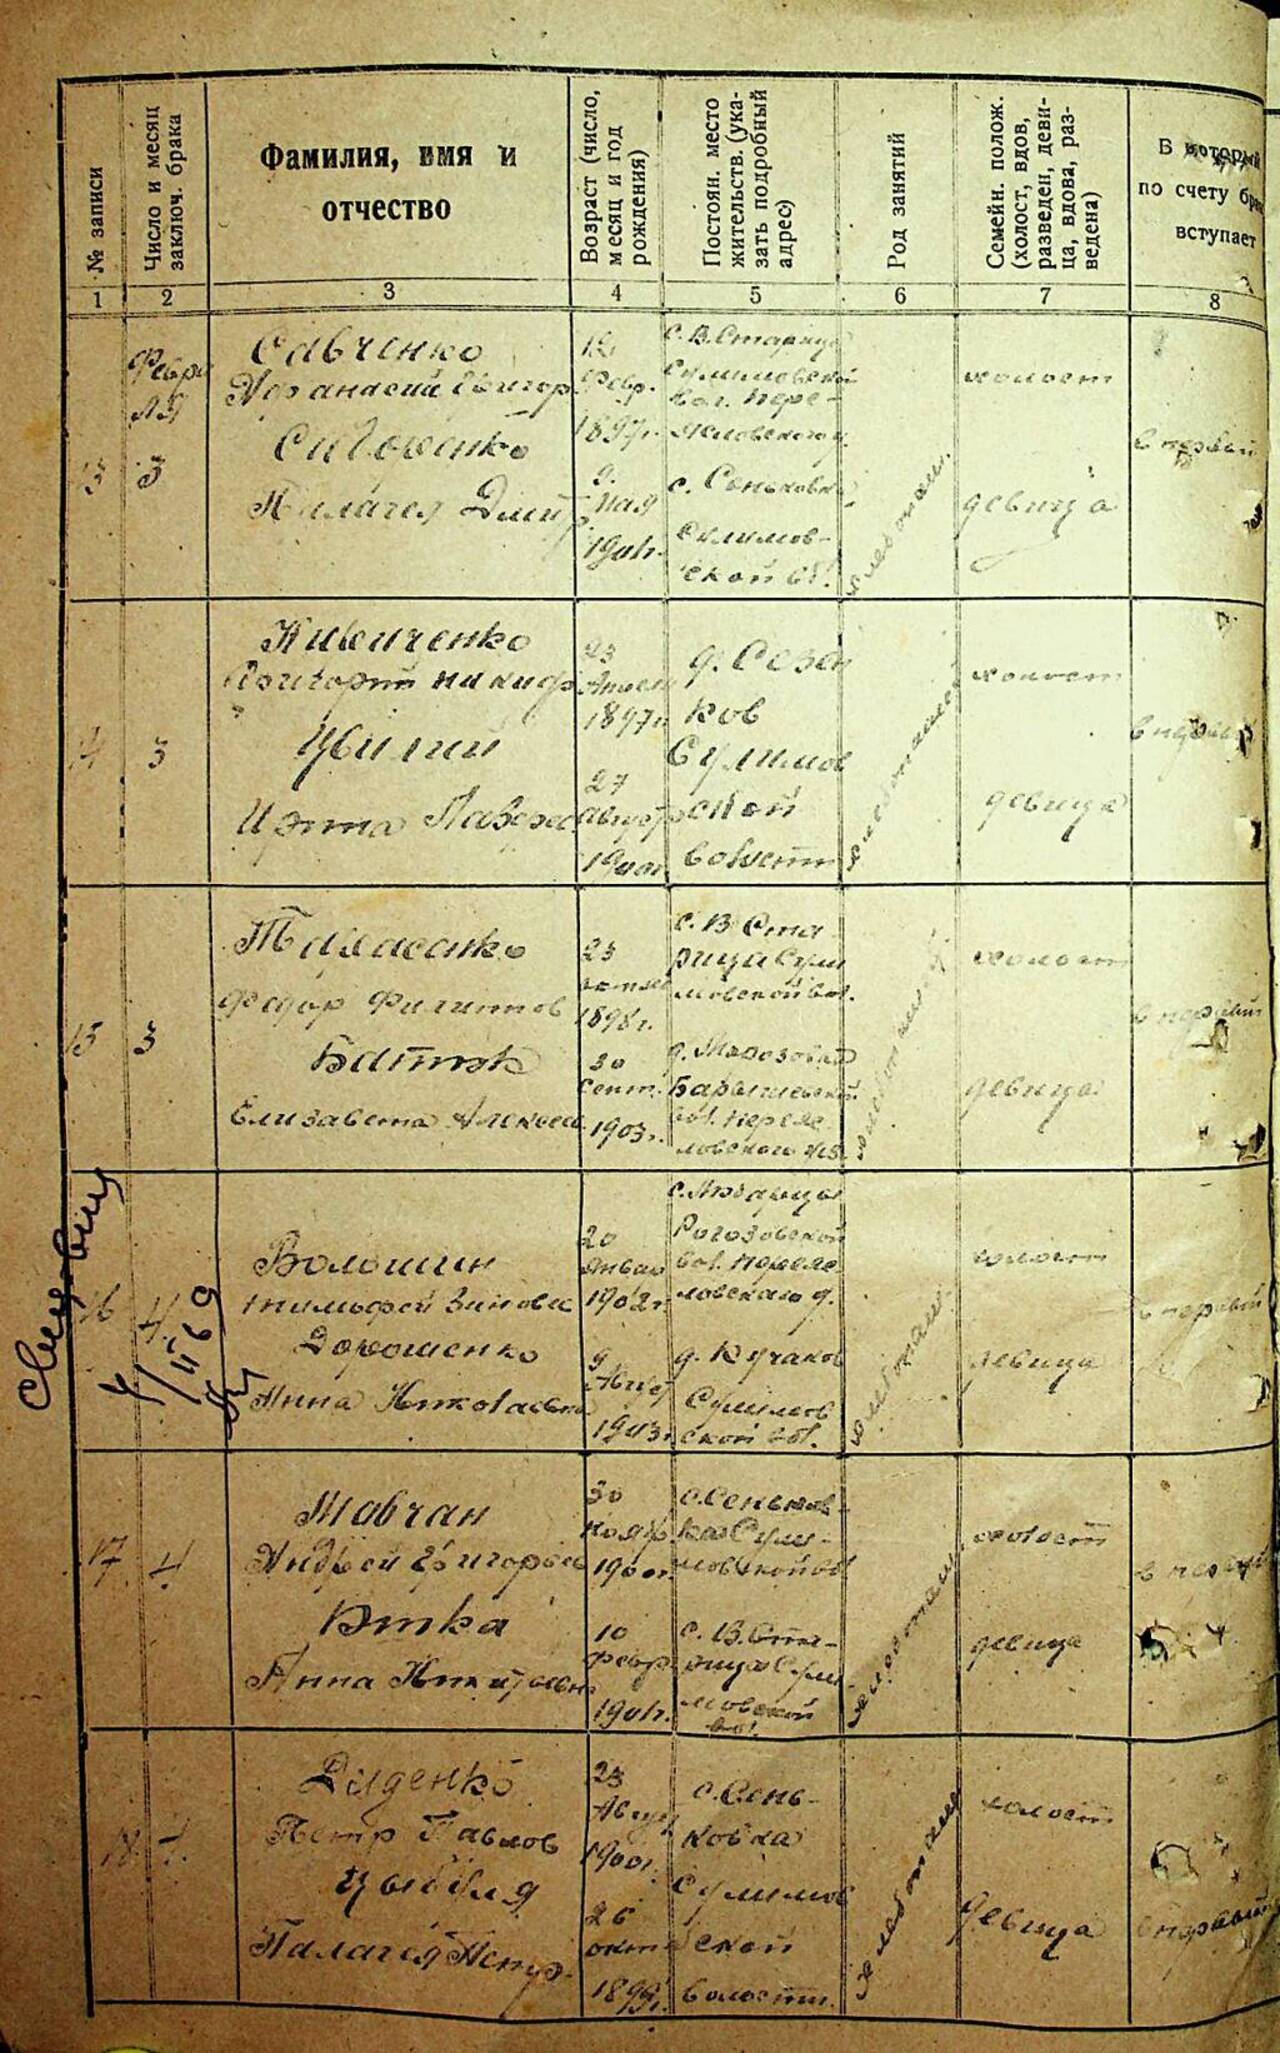 № записи
Число и месяц
заключ. брака
Фамилия, имя и
отчество
Возраст (число,
месяц и год
рождения)
Постоян. место
жительств. (ука-
зать подробный
адрес)
Род занятий
Семейн. полож.
(холост, вдов,
разведен, деви-
ца, вдова, раз-
ведена)
В который
по счету брак
вступает
1
2
3
4
5
6
7
8
13
Февра
ля
3
Савченко
Афанасий Григор
Сидоренко
Пилагея Дмитр
12
Февр.
1897г.
9.
Мая
1901г.
с. В. Старица
Сулимовской
вол. Пере-
яславского у.
с. Сеньковка
Сулимов-
ской вол.
хлебопаш.
холост
девица
в первый
14
3
Кириченко
Григорий Никиф
Цвилий
Лаврен
23
Апреля
1897г.
27
августа
1900г.
д. Сезен
ков
Сулимов
ской
волости
хлебопашец
холост
девица
в первый
15
3
Тарасенко
Федор Филиппов
Батюк
Елизавета Алексеев
23
1898г.
30
Сент.
1903г.
с. В Ста
рица Сули
мовской вол.
д. Морозовка
Барышевской
вол. Переяс
ловского уез.
холост
девица
в первый
16
4
Волошин
Тимофей Зиновьев
Дорошенко
Анна Николаевна
20
Январ
1902г.
9
Август
1903г.
Рогозовской
вол. Переяс
ловского у.
д. Кучаков
Сулимов
ской вол.
хлебопаш.
холост
девица
в первый
17
4
Мовчан
Андрей Григорьев
Ютка
Анна Никитьевн
30
Нояб.
1900г.
с. Сеньков-
ка Сули-
мовской вол
10
Февр.
1901г.
с. В. Ста-
рица Сули
мовской
вол.
хлебопаш.
холост
девица
в первый
18
4
Диденко
Петр Павлов
Цыбуля
Палагея Петр.
23
Август
1900г.
26
окт
1899г.
с. Сень-
ковка
Сулимов
ской
волости.
хлебопаш
холост
девица
в первый